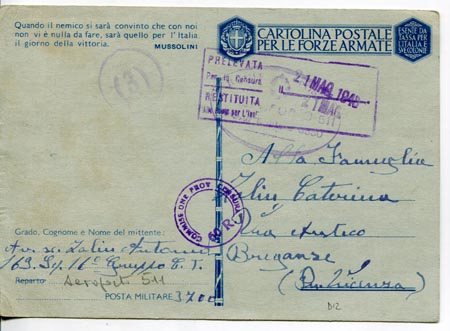 Quando il nemico si sarà convinto che con noi
non vi è nulla da fare, sarà quello per l'Italia
il giorno della vittoria.
MUSSOLINI
CARTOLINA POSTALE
PER LE FORZE ARMATE
ESENTE DA
TASSA PER
L'ITALIA E
SUE COLONIE
(3)
PRELEVATA
Per la Censura
RESTITUITA
21 MAG. 1943
21 MAG.
Alla Famiglia
Zilio Caterina
Via
Breganze
(Vicenza)
COMMISSIONE PROV. CENSURA
60 R
Grado, Cognome e Nome del mittente:
Av. Sc. Zilio Antonio
163 Sq. 16° Gruppo C. T.
Reparto Aeroporto 511
POSTA MILITARE 3700
D12